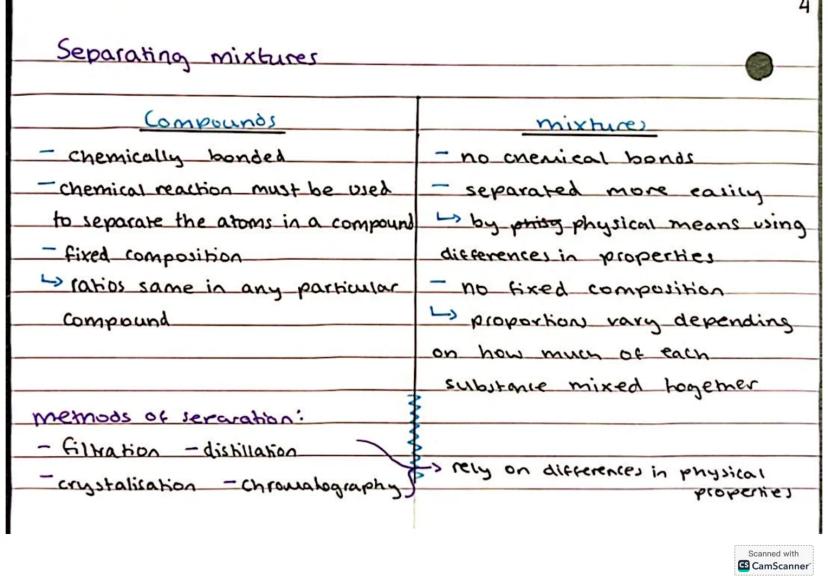 4
Separating mixtures
Compounds
- chemically bonded
- chemical reaction must be used
to separate the atoms in a compound
- fixed composition
↳ ratios same in any particular
compound
mixtures
- no chemical bonds
- separated more easily
↳ by physical means using
differences in properties
- no fixed composition
↳ proportions vary depending
on how much of each
substance mixed together
methods of separation:
- filtration - distillation
- crystalisation - chromatography
→ rely on differences in physical
properties
Scanned with
CS CamScanner